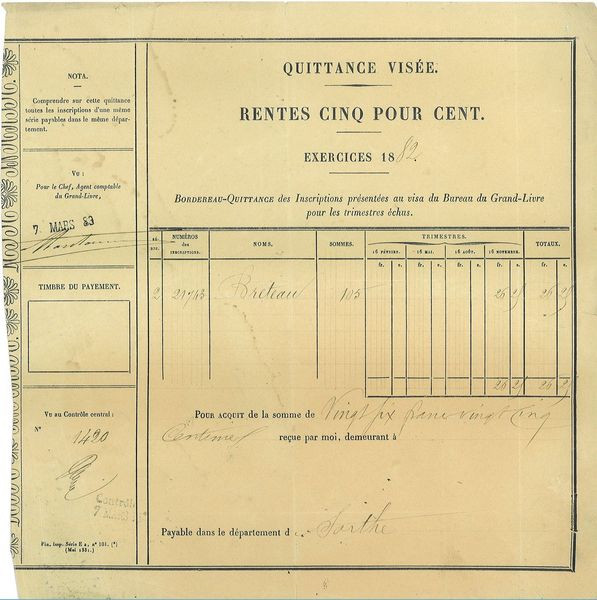 NOTA.
Comprendre sur cette quittance
toutes les inscriptions d'une même
série payables dans le même dépar-
tement.
VU :
Pour le Chef, Agent comptable
du Grand-Livre,
7 MARS 83
TIMBRE DU PAYEMENT.
Vu au Contrôle central :
N°
1420
Contrôle
7 MARS
Fin. Imp. Série E 2, n° 101. (*)
(Mai 1881.)
QUITTANCE VISÉE.
RENTES CINQ POUR CENT.
EXERCICES 1882.
BORDEREAU-QUITTANCE des Inscriptions présentées au visa du Bureau du Grand-Livre
pour les trimestres échus.
SÉ-
RIE.
NUMÉROS
des
INSCRIPTIONS.
NOMS.
SOMMES.
TRIMESTRES.
16 FÉVRIER.
16 MAI.
16 AOÛT.
16 NOVEMBRE.
TOTAUX.
fr. c. fr. c. fr. c. fr. c. fr. c.
2 21743 Breteau 105 26 25 26 25
26 25 26 25
POUR ACQUIT de la somme de Vingt six francs vingt cinq
Centimes reçue par moi, demeurant à
Payable dans le département d Sarthe